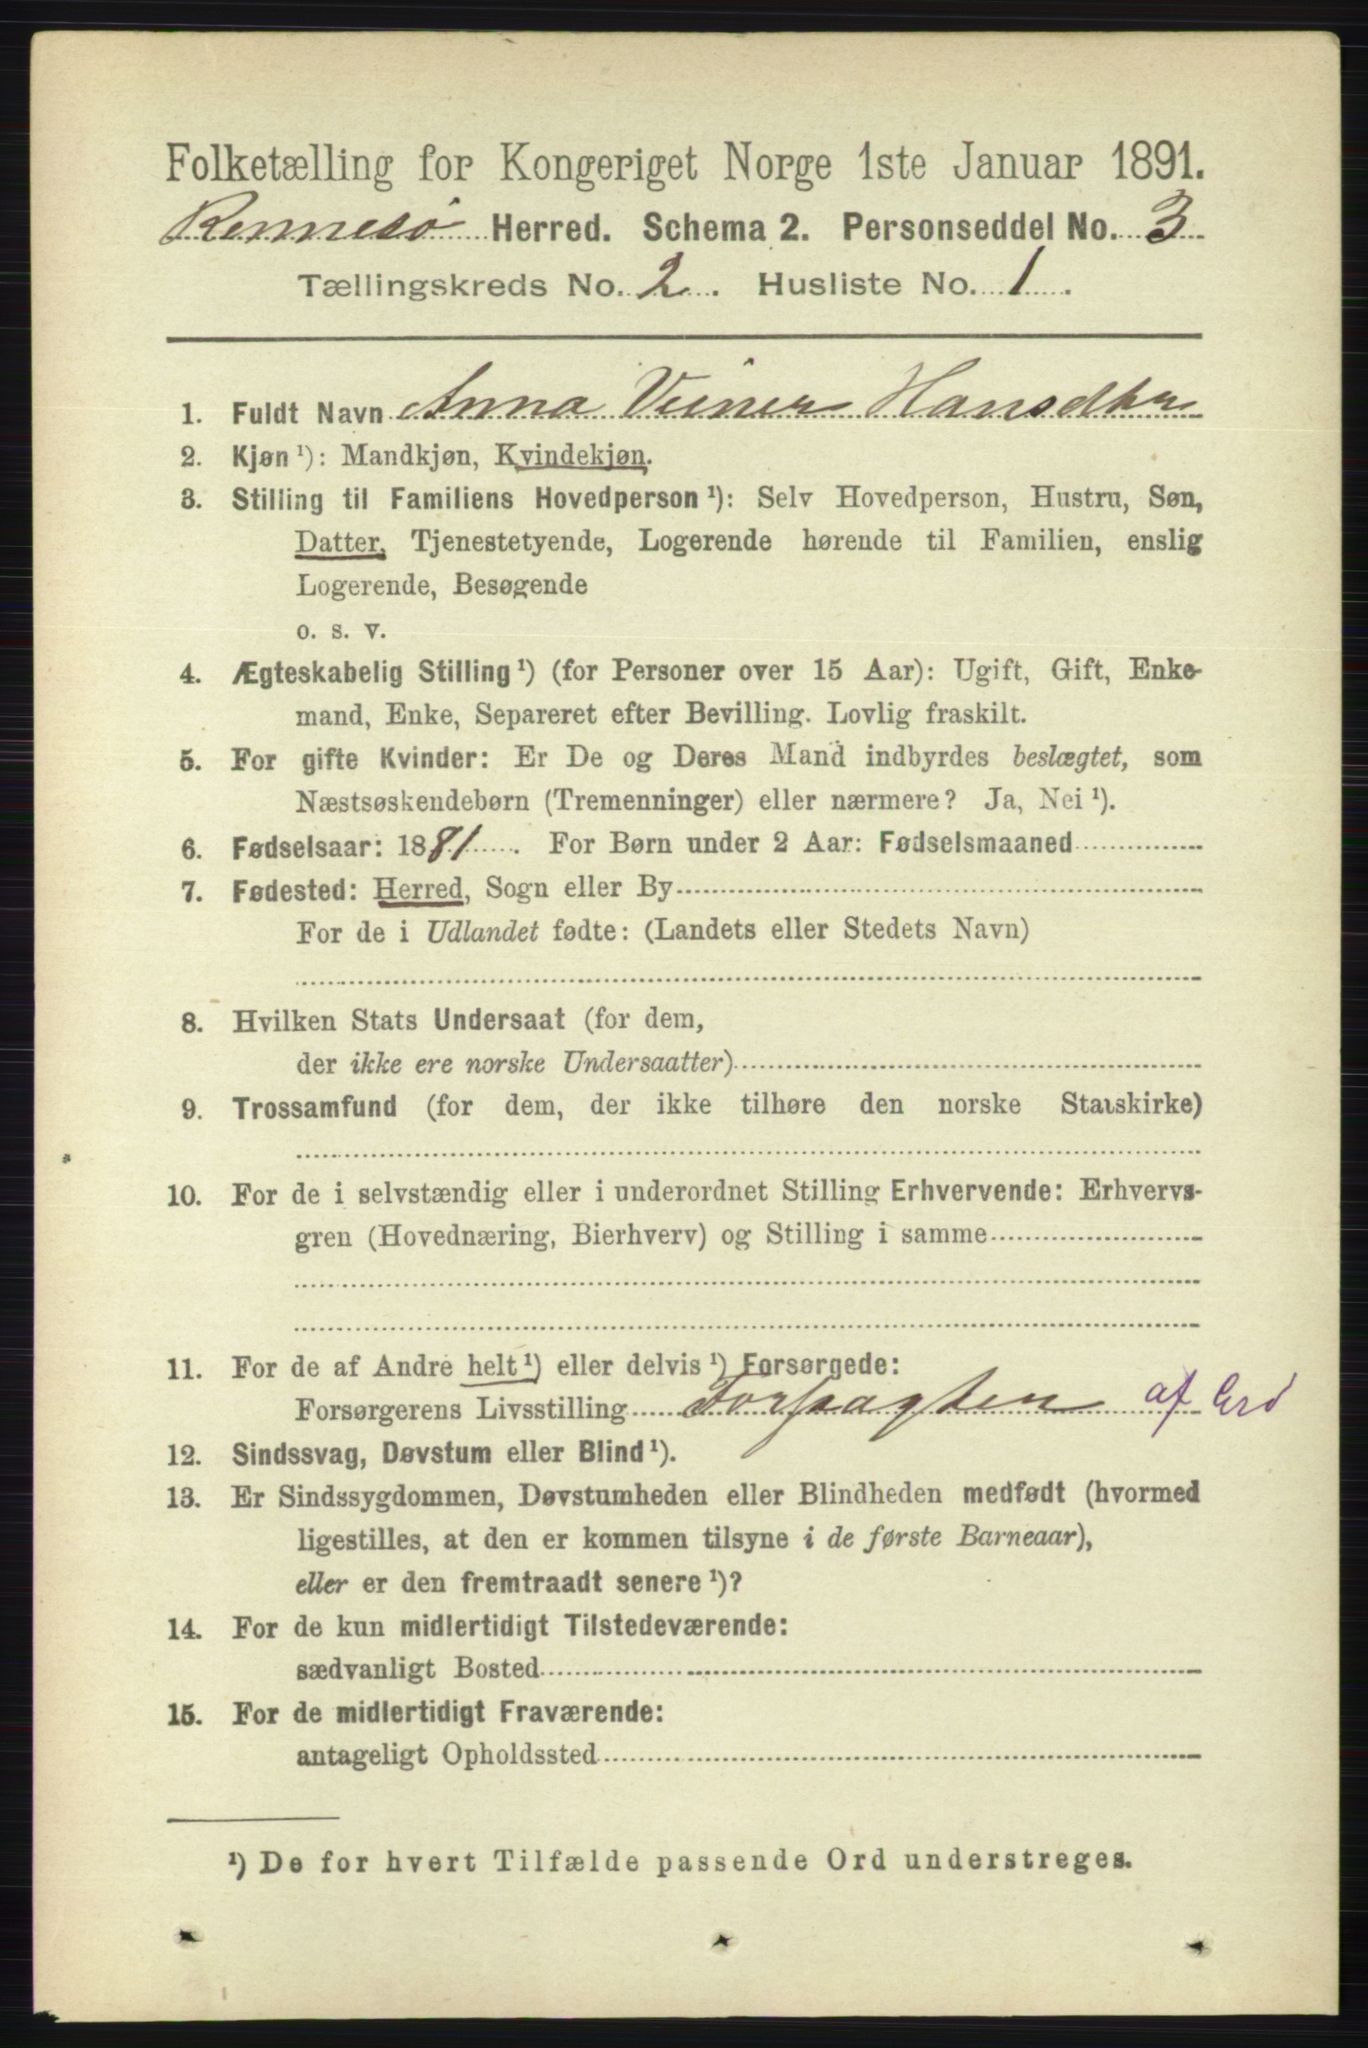 Folketælling for Kongeriget Norge 1ste Januar 1891.
Rennesö Herred. Schema 2. Personseddel No. 3
Tællingskreds No. 2. Husliste No. 1.
1. Fuldt Navn Anna Hansdtr
2. Kjøn ¹): Mandkjøn, Kvindekjøn.
3. Stilling til Familiens Hovedperson ¹): Selv Hovedperson, Hustru, Søn,
Datter, Tjenestetyende, Logerende hørende til Familien, enslig
Logerende, Besøgende
o. s. v.
4. Ægteskabelig Stilling ¹) (for Personer over 15 Aar): Ugift, Gift, Enke-
mand, Enke, Separeret efter Bevilling. Lovlig fraskilt.
5. For gifte Kvinder: Er De og Deres Mand indbyrdes beslægtet, som
Næstsøskendebørn (Tremenninger) eller nærmere? Ja, Nei ¹).
6. Fødselsaar: 1881. For Børn under 2 Aar: Fødselsmaaned
7. Fødested: Herred, Sogn eller By
For de i Udlandet fødte: (Landets eller Stedets Navn)
8. Hvilken Stats Undersaat (for dem,
der ikke ere norske Undersaatter)
9. Trossamfund (for dem, der ikke tilhøre den norske Statskirke)
10. For de i selvstændig eller i underordnet Stilling Erhvervende: Erhvervs-
gren (Hovednæring, Bierhverv) og Stilling i samme
11. For de af Andre helt ¹) eller delvis ¹) Forsørgede:
Forsørgerens Livsstilling Forpagten af
12. Sindssvag, Døvstum eller Blind ¹).
13. Er Sindssygdommen, Døvstumheden eller Blindheden medfødt (hvormed
ligestilles, at den er kommen tilsyne i de første Barneaar),
eller er den fremtraadt senere ¹)?
14. For de kun midlertidigt Tilstedeværende:
sædvanligt Bosted
15. For de midlertidigt Fraværende:
antageligt Opholdssted
¹) De for hvert Tilfælde passende Ord understreges.